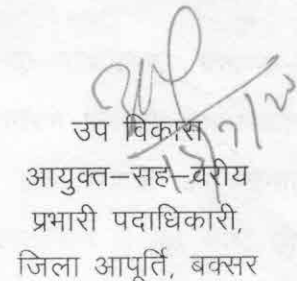 उप विकास
आयुक्त–सह–वरीय
प्रभारी पदाधिकारी,
जिला आपूर्ति, बक्सर